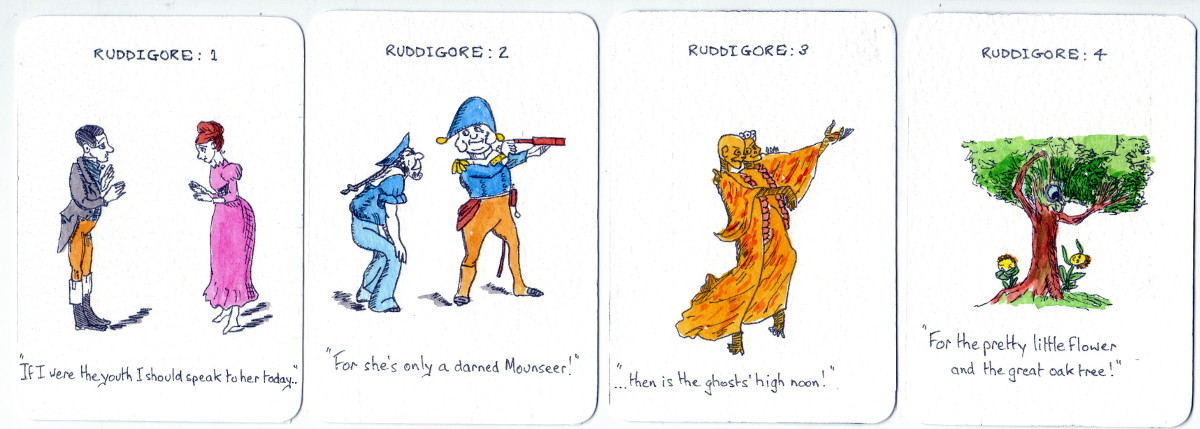 RUDDIGORE: 1
"If I were the youth I should speak to her today.."
RUDDIGORE: 2
"For she's only a darned Mounseer!"
RUDDIGORE: 3
"...then is the ghosts' high noon!"
RUDDIGORE: 4
"For the pretty little flower
and the great oak tree!"